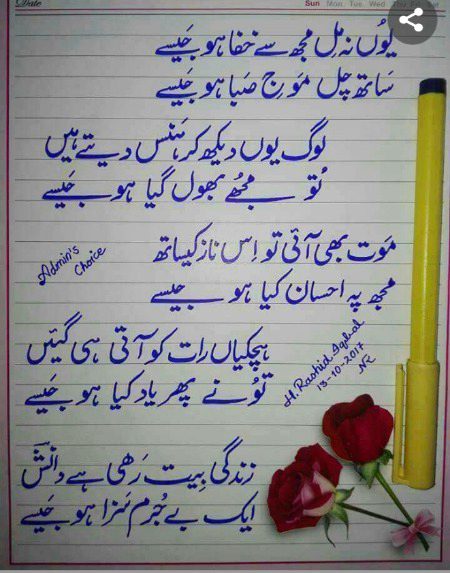 Date
Sun Mon. Tue. Wed Thu Fri Sat
یُوں نہ مِل مجھ سے خفا ہو جَیسے
سَاتھ چل مَوجِ صبَا ہو جَیسے
لوگ یوں دیکھ کر ہَنس دیتے ہیں
تُو مجُھے بھول گیا ہو جَیسے
مَوت بھی آئی تو اِس ناز کیساتھ
مجھ پہ احسان کیا ہو جیسے
ہچکیاں رات کو آتی ہی گئیں
تُو نے پھر یاد کیا ہو جَیسے
زندگی بِیت رَھی ہے دانشؔ
ایک بے جُرم سَزا ہو جَیسے
Admin's
Choice
H. Rashid Iqbal
13-10-2017